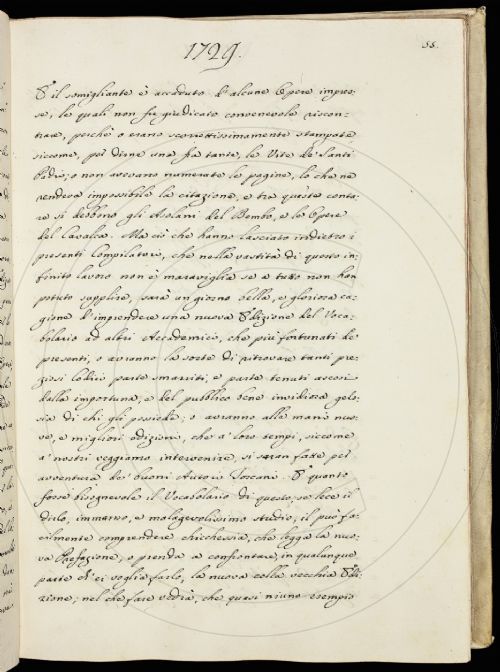 1729.
55.
E il somigliante è accaduto d'alcune Opere impres-
se, le quali non fu giudicato convenevole riscon-
trare, perchè o erano scorrettissimamente stampate
siccome, per dirne una fra tante, le Vite de' Santi
Padri; o non avevano numerate le pagine, lo che ne
rendeva impossibile la citazione, e tra queste conta-
re si debbono gli Asolani del Bembo, e le Opere
del Cavalca. Ma ciò che hanno lasciato indietro i
presenti Compilatori, che nella vastità di questo in-
finito lavoro non è maraviglia se a tutto non han
potuto supplire, sarà un giorno bella, e gloriosa ca-
gione d'imprendere una nuova Edizione del Voca-
bolario ad altri Accademici, che più fortunati de'
presenti, o avranno la sorte di ritrovare tanti pre-
ziosi Codici parte smarriti, e parte tenuti ascosi
dalla importuna, e del pubblico bene invidiosa gelo-
sia di chi gli possiede; o avranno alla mano nuo-
ve, e migliori edizioni, che a' loro tempi, siccome
a' nostri veggiamo intervenire, si saran fatte per
avventura de' buoni Autori Toscani. E quanto
fosse bisognevole il Vocabolario di questo, se lece il
dirlo, immenso, e malagevolissimo studio, il può fa-
cilmente comprendere chicchessia, che legga la nuo-
va Prefazione, o prenda a confrontare, in qualunque
parte ch'ei voglia farlo, la nuova colla vecchia Edi-
zione; nel che fare vedrà, che quasi niuno esempio